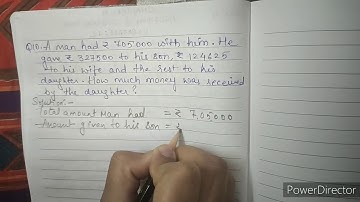 Q10. A man had ₹ 705000 with him. He
gave ₹ 327500 to his son, ₹ 124625
to his wife and the rest to his
daughter. How much money was received
by the daughter?
Solution:-
Total amount Man had = ₹ 7,05000
Amount given to his son = ₹
PowerDirector